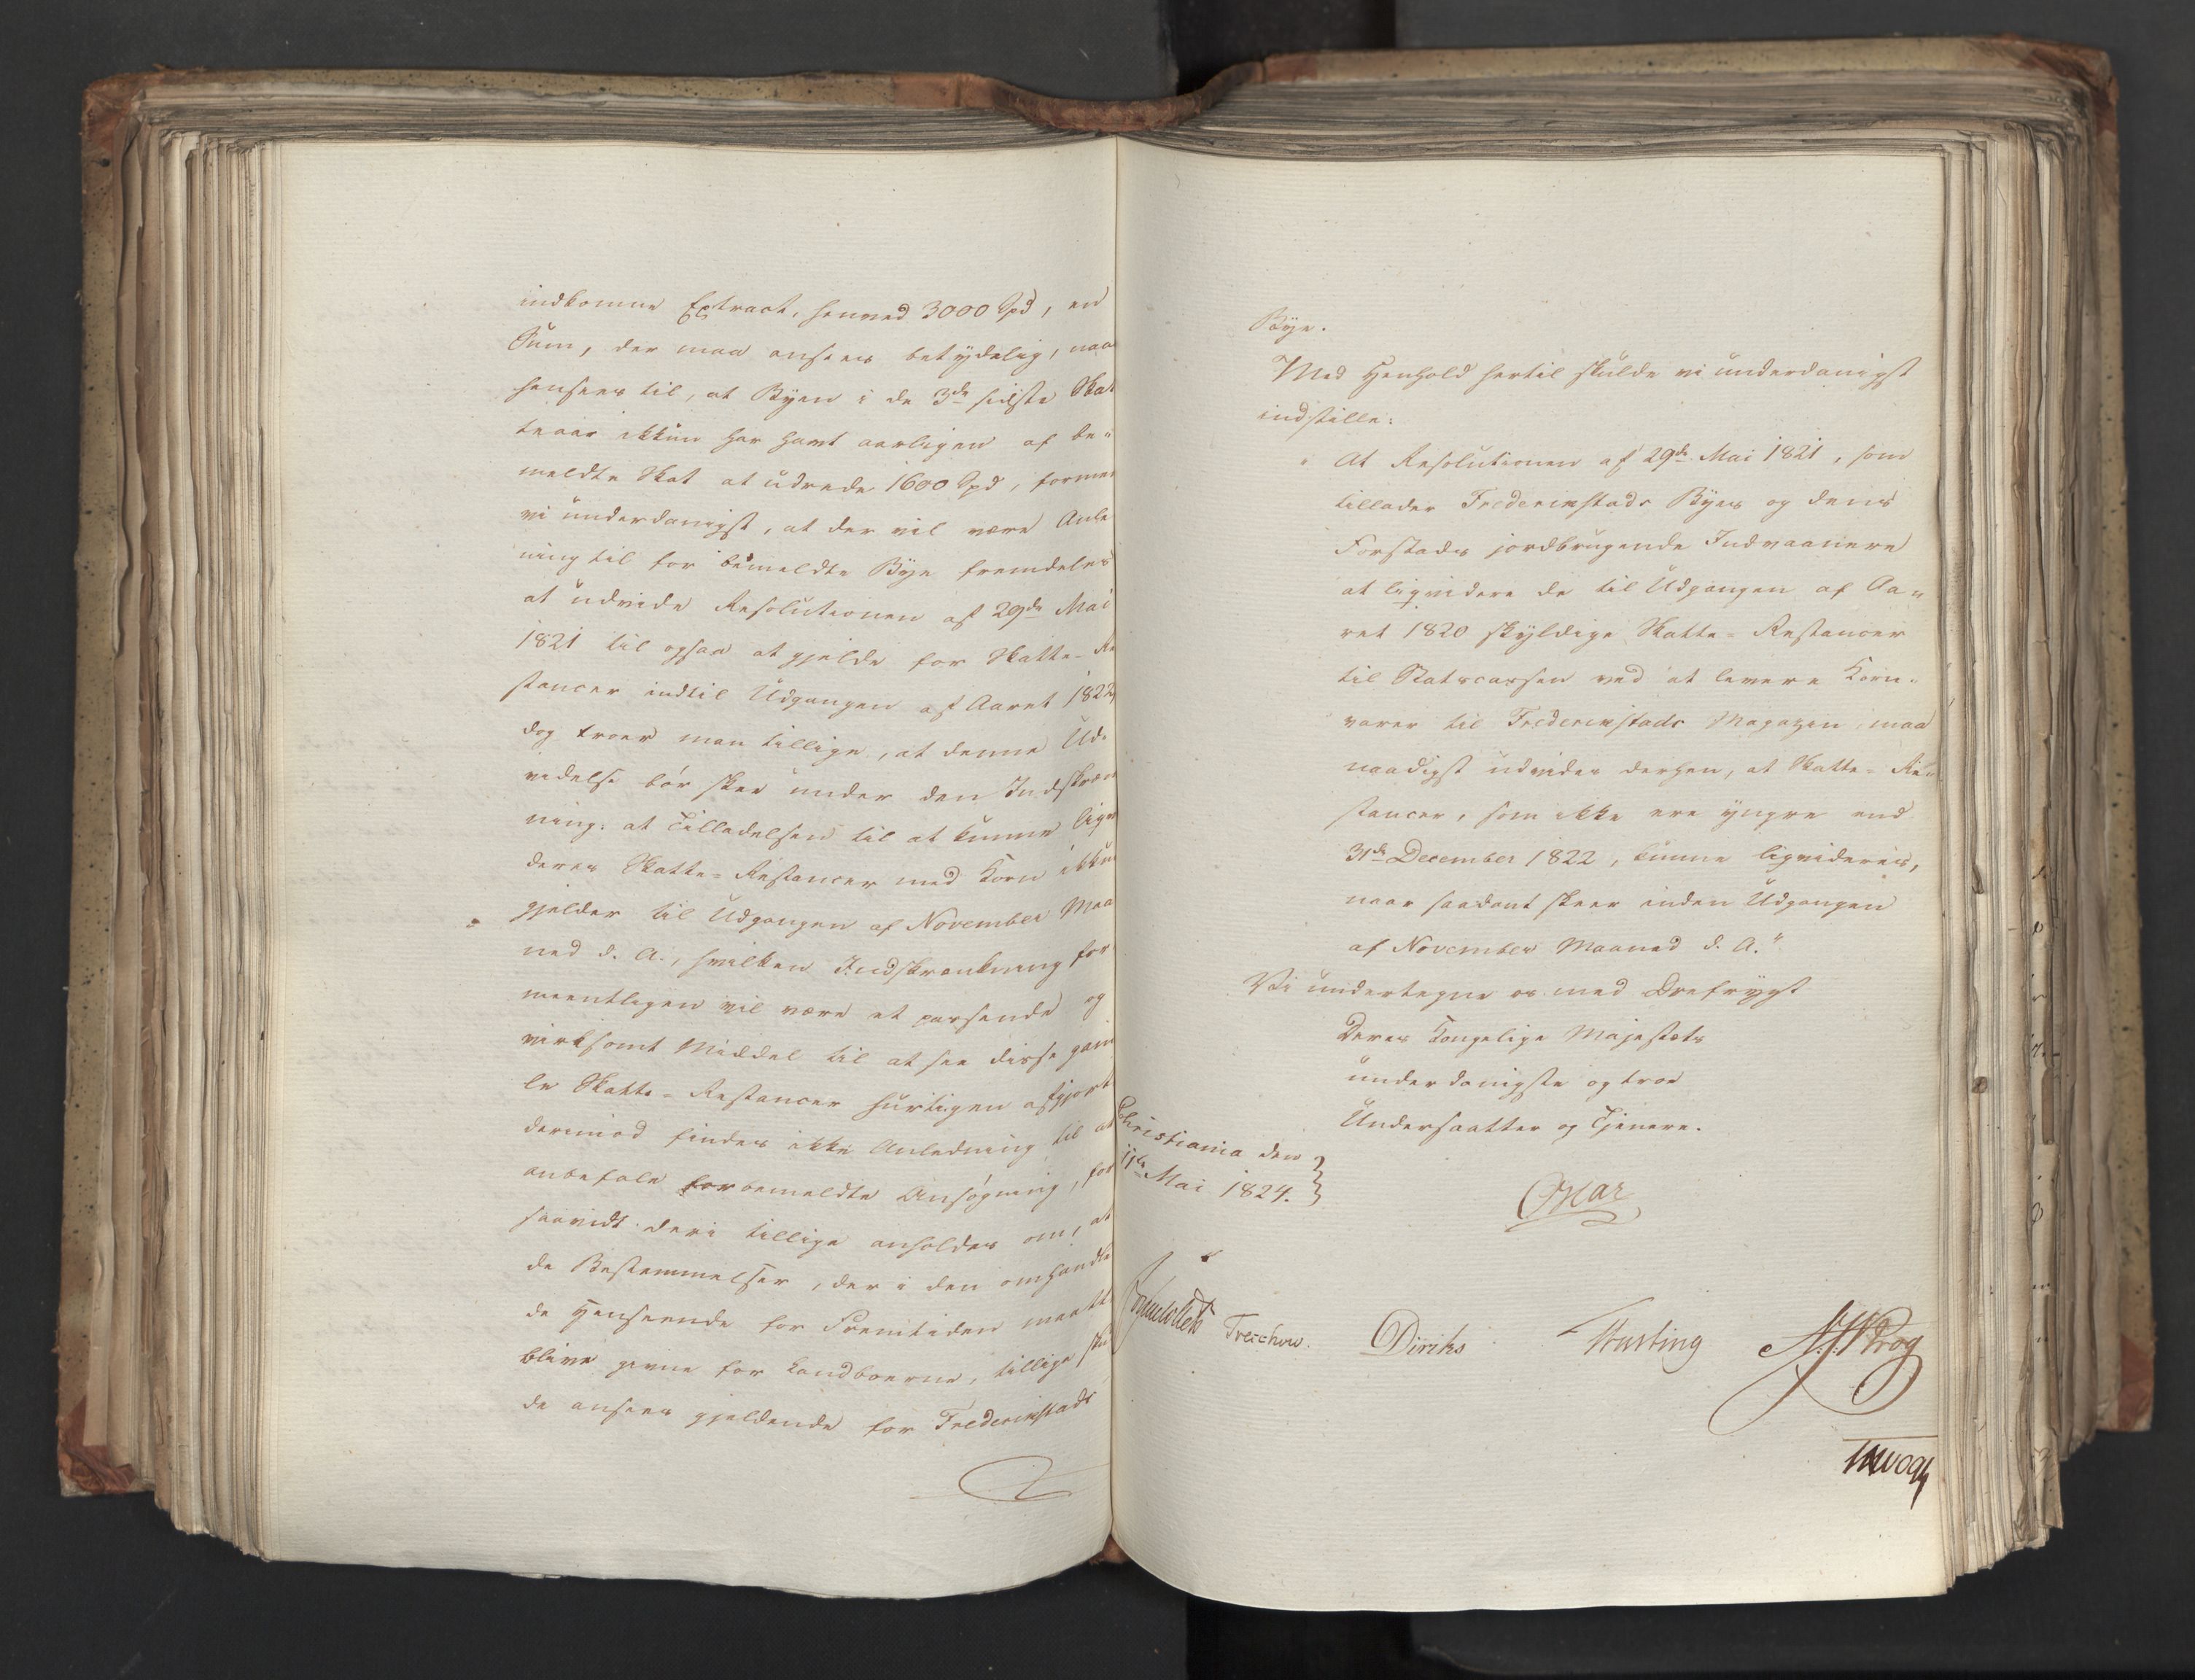 indkomne Extract, henved 3000 Spd, en
Sum, der maa ansees betydelig, naa
henseees til, at Byen i de 3de sidste Skat
teaar ikkun har havt aarligen af be„
meldte Skat at udrede 1600 Spd, formee
vi underdanigst, at der vil være Anle
ning til for bemeldte Bye fremdeles
at udvide Resolutionen af 29de Mai
1821 til ogsaa at gjelde for Skatte-Re
stancer indtil Udgangen af Aaret 1822,
dog troer man tillige, at denne Ud„
videlse bör skee under den Indskræn
ning: at Tilladelsen til at kunne liqvi
deres Skatte-Restancer med Korn ikkun
gjelder til Udgangen af November Maa
ned d. A., hvilken Indskrænkning for
meentligen vil være et passende og
virksomt Middel til at see disse gam
le Skatte-Restancer hurtigen afgjort
derimod findes ikke Anledning til at
anbefale forbemeldte Ansögning, for
saavidt deri tillige anholdes om, at
de Bestemmelser, der i den omhandle
de Henseende for Fremtiden maatte
blive givne for Landboerne, tillige skul
de ansees gjeldende for Frederikstads
Bye.
Med Henhold hertil skulde vi underdanigst
indstille:
" At Resolutionen af 29de Mai 1821, som
tillader Frederikstads Byes og dens
Forstads jordbrugende Indvaanere
at liqvidere de til Udgangen af Aa„
ret 1820 skyldige Skatte-Restancer
til Statscassen ved at levere Korn„
varer til Frederikstads Magazin, maa
naadigst udvides derhen, at Skatte-Re„
stancer, som ikke ere yngre end
31de December 1822, kunne liqvideres,
naar saadant skeer inden Udgangen
af November Maaned d. A."
Vi undertegne os med Ærefrygt
Deres Kongelige Majestæts
underdanigste og troe
Undersaatter og Tjenere.
Christiania den
11te Mai 1824.
Oscar
Treschow. Diriks Fasting Krog
Vogt